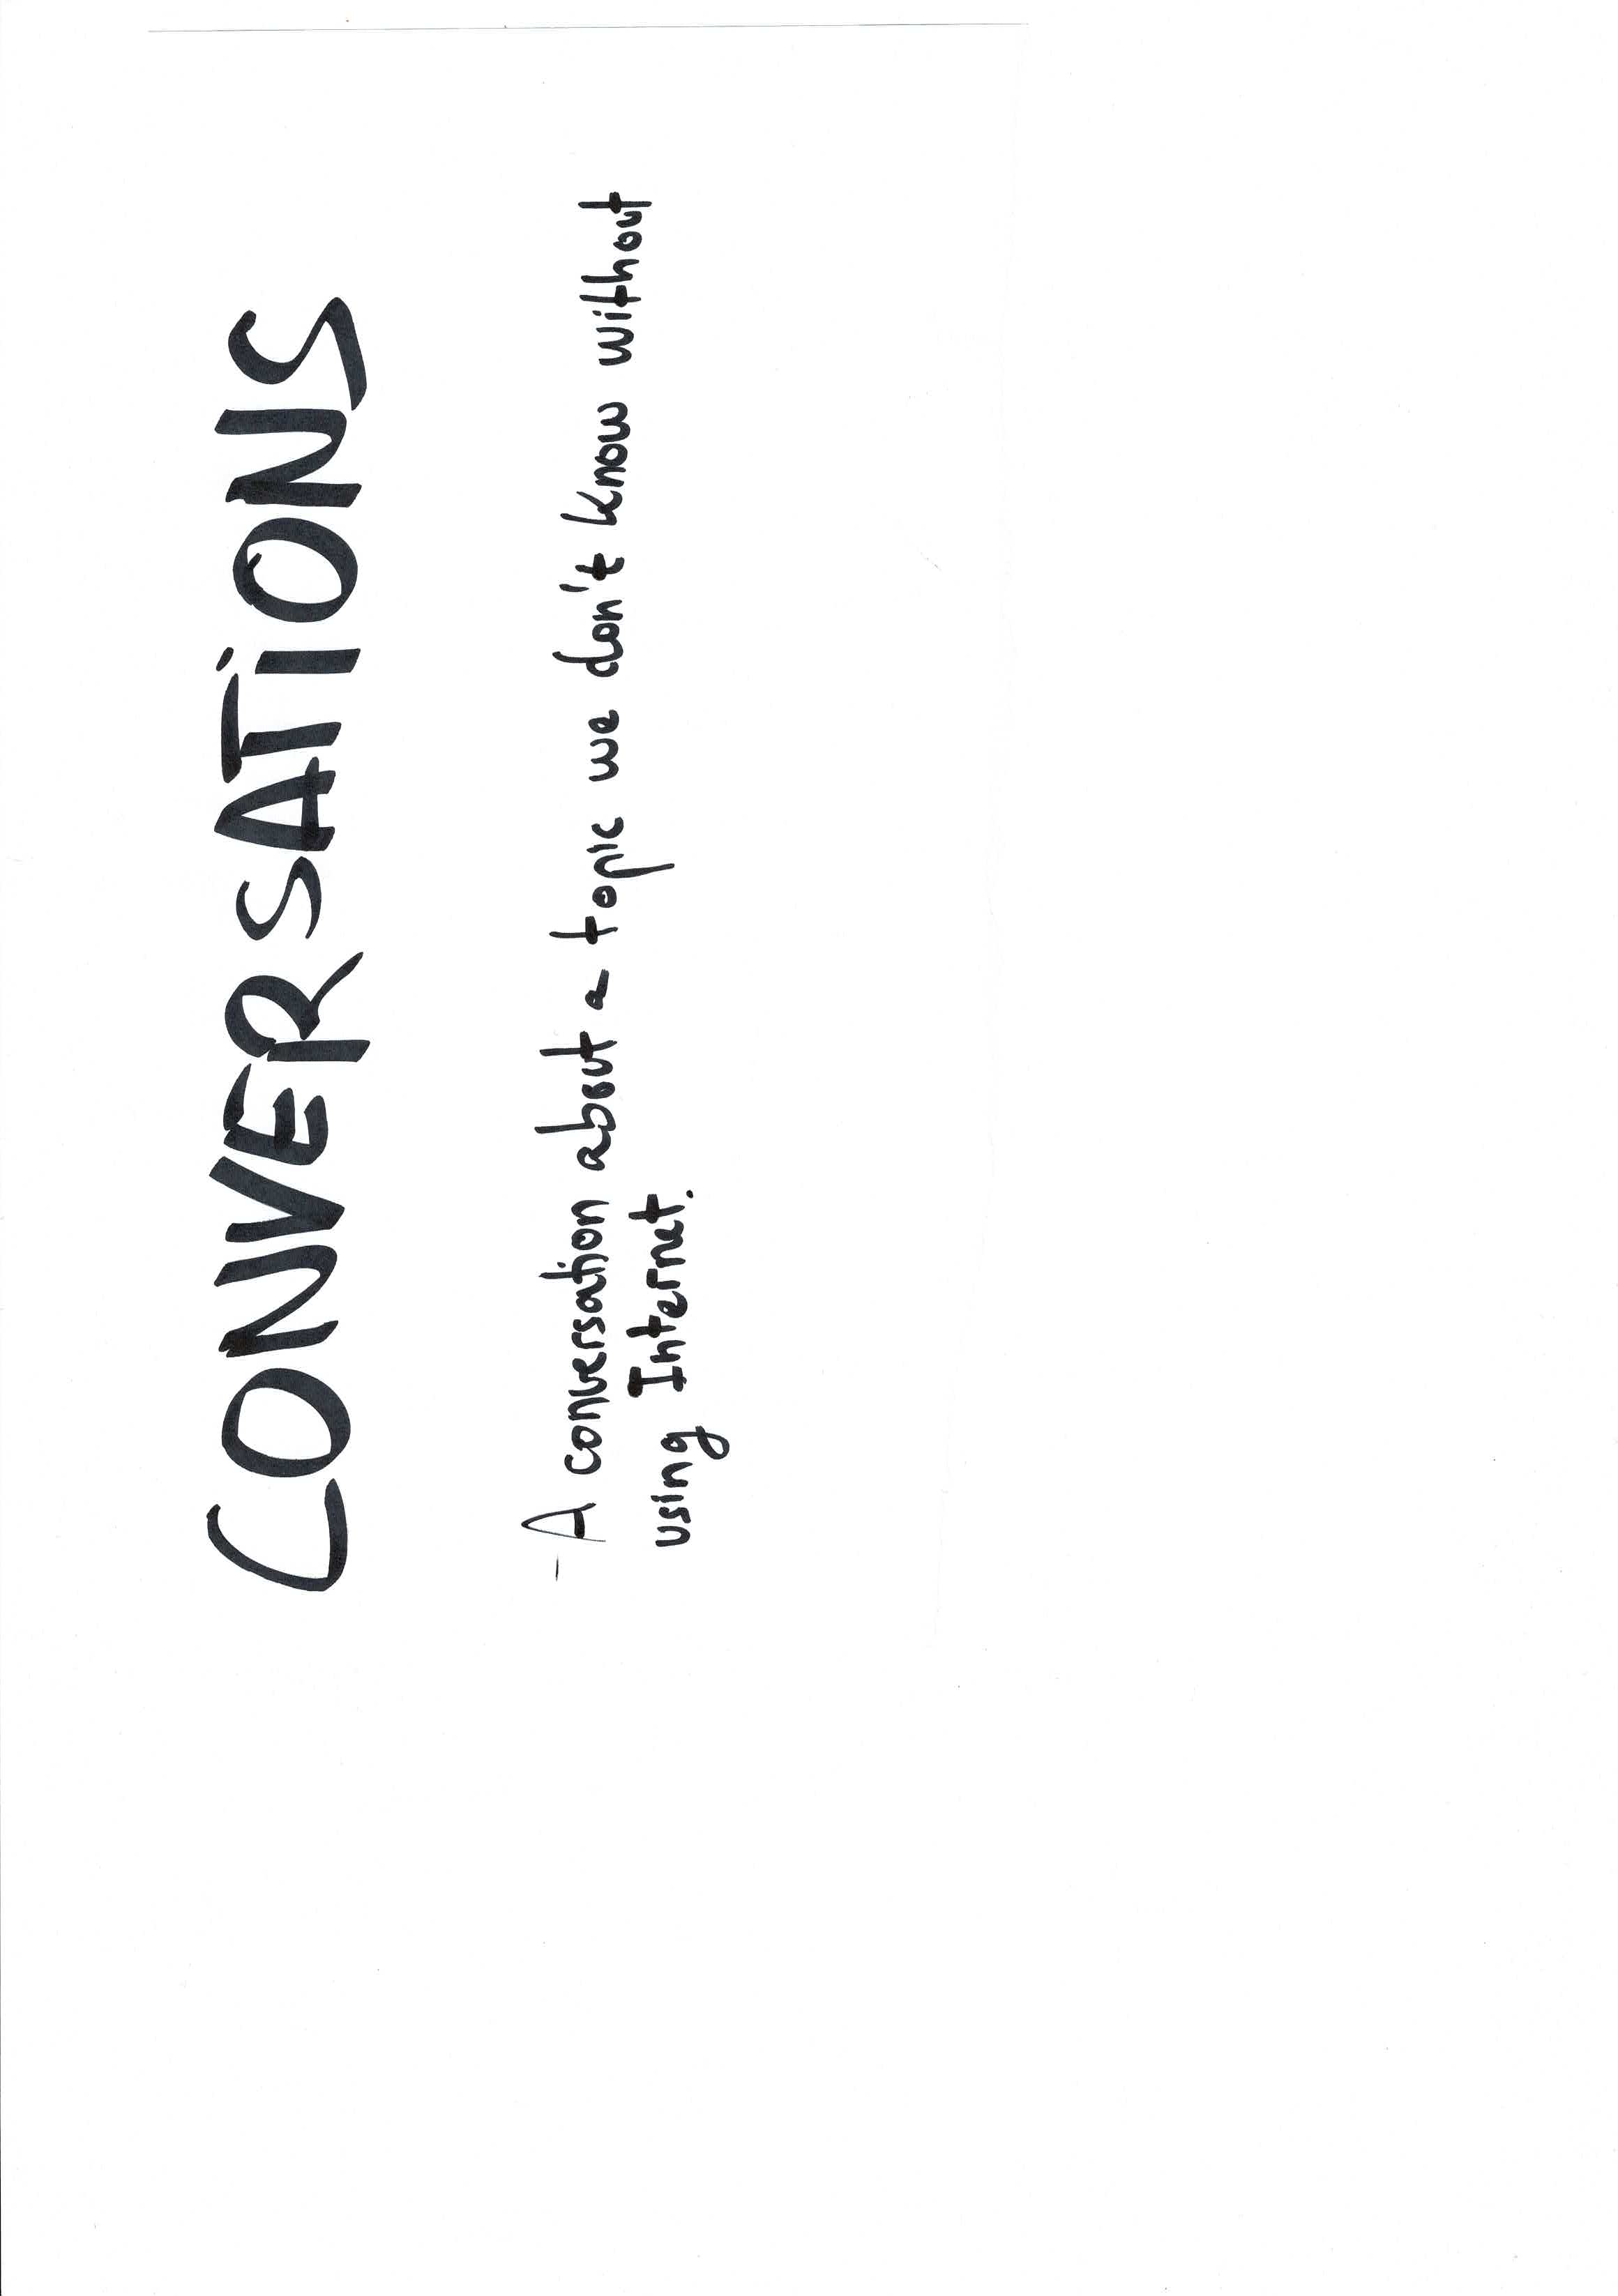 CONVERSATIONS
- A conversation about a topic we don't know without
using Internet.